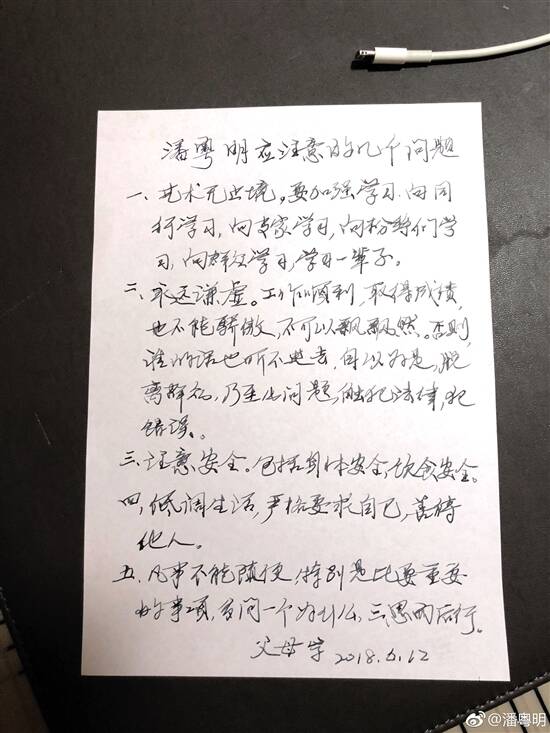 潘粤明应注意的几个问题
一、艺术无止境，要加强学习，向同
行学习，向专家学习，向粉丝们学
习，向群众学习，学习一辈子。
二、永远谦虚。工作顺利，取得成绩，
也不能骄傲，不可以飘飘然。否则
谁的话也听不进去，自以为是，脱
离群众，乃至出问题，触犯法律，犯
错误。
三、注意安全。包括身体安全，饮食安全。
四，低调生活，严格要求自己，善待
他人。
五、凡事不能随便，特别是比较重要
的事项，多问一个为什么，三思而后行。
父母字 2018.6.12
@潘粤明